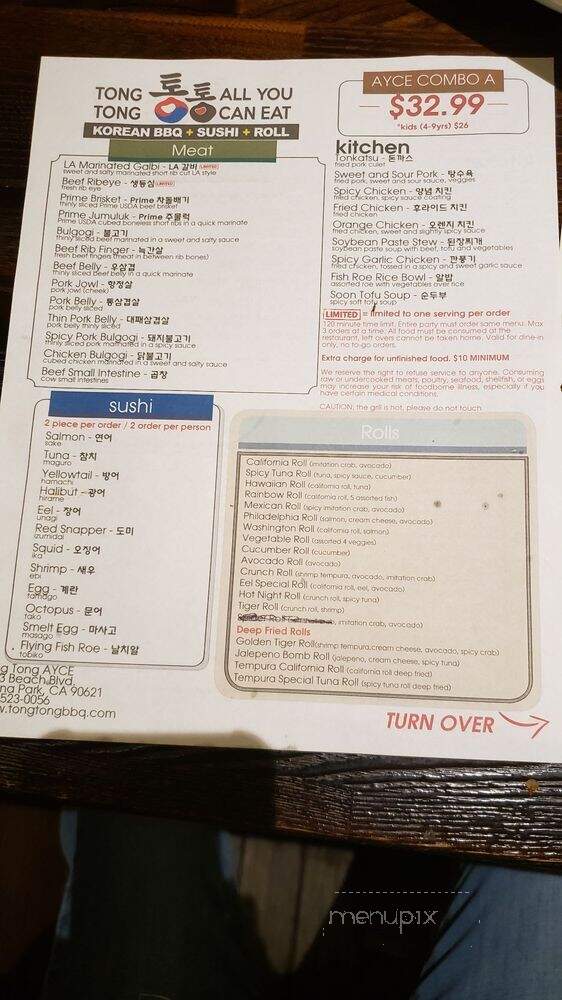 TONG 통통 ALL YOU
TONG CAN EAT
KOREAN BBQ + SUSHI + ROLL
AYCE COMBO A
$32.99
*kids (4-9yrs) $26
Meat
LA Marinated Galbi - LA 갈비 LIMITED
sweet and salty marinated short rib cut LA style
Beef Ribeye - 생등심 LIMITED
fresh rib eye
Prime Brisket - Prime 차돌배기
thinly sliced Prime USDA beef brisket
Prime Jumuluk - Prime 주물럭
Prime USDA cubed boneless short ribs in a quick marinate
Bulgogi - 불고기
thinly sliced beef marinated in a sweet and salty sauce
Beef Rib Finger - 늑간살
fresh beef fingers (meat in between rib bones)
Beef Belly - 우삼겹
thinly sliced beef belly in a quick marinate
Pork Jowl - 항정살
pork jowl (cheek)
Pork Belly - 통삼겹살
pork belly sliced
Thin Pork Belly - 대패삼겹살
pork belly thinly sliced
Spicy Pork Bulgogi - 돼지불고기
thinly sliced pork marinated in a spicy sauce
Chicken Bulgogi - 닭불고기
cubed chicken marinated in a sweet and salty sauce
Beef Small Intestine - 곱창
cow small intestines
kitchen
Tonkatsu - 돈까스
fried pork culet
Sweet and Sour Pork - 탕수육
fried pork, sweet and sour sauce, veggies
Spicy Chicken - 양념 치킨
fried chicken, spicy sauce coating
Fried Chicken - 후라이드 치킨
fried chicken
Orange Chicken - 오렌지 치킨
fried chicken, sweet and slightly spicy sauce
Soybean Paste Stew - 된장찌개
soybean paste soup with beef, tofu and vegetables
Spicy Garlic Chicken - 깐풍기
fried chicken, tossed in a spicy and sweet garlic sauce
Fish Roe Rice Bowl - 알밥
assorted roe with vegetables over rice
Soon Tofu Soup - 순두부
spicy soft tofu soup
LIMITED = limited to one serving per order
120 minute time limit. Entire party must order same menu. Max
3 orders at a time. All food must be consumed at the
restaurant, left overs cannot be taken home. Valid for dine-in
only, no to-go orders.
Extra charge for unfinished food. $10 MINIMUM
We reserve the right to refuse service to anyone. Consuming
raw or undercooked meats, poultry, seafood, shellfish, or eggs
may increase your risk of foodborne illness, especially if you
have certain medical conditions.
CAUTION: the grill is hot, please do not touch
sushi
2 piece per order / 2 order per person
Salmon - 연어
sake
Tuna - 참치
maguro
Yellowtail - 방어
hamachi
Halibut - 광어
hirame
Eel - 장어
unagi
Red Snapper - 도미
izumidai
Squid - 오징어
ika
Shrimp - 새우
ebi
Egg - 계란
tamago
Octopus - 문어
tako
Smelt Egg - 마사고
masago
Flying Fish Roe - 날치알
tobiko
Rolls
California Roll (imitation crab, avocado)
Spicy Tuna Roll (tuna, spicy sauce, cucumber)
Hawaiian Roll (california roll, tuna)
Rainbow Roll (california roll, 5 assorted fish)
Mexican Roll (spicy imitation crab, avocado)
Philadelphia Roll (salmon, cream cheese, avocado)
Washington Roll (california roll, salmon)
Vegetable Roll (assorted 4 veggies)
Cucumber Roll (cucumber)
Avocado Roll (avocado)
Crunch Roll (shrimp tempura, avocado, imitation crab)
Eel Special Roll (california roll, eel, avocado)
Hot Night Roll (crunch roll, spicy tuna)
Tiger Roll (crunch roll, shrimp)
imitation crab, avocado)
Deep Fried Rolls
Golden Tiger Roll(shrimp tempura,cream cheese, avocado, spicy crab)
Jalepeno Bomb Roll (jalepeno, cream cheese, spicy tuna)
Tempura California Roll (california roll deep fried)
Tempura Special Tuna Roll (spicy tuna roll deep fried)
g Tong AYCE
3 Beach Blvd.
na Park, CA 90621
523-0056
v.tongtongbbq.com
TURN OVER
menupix